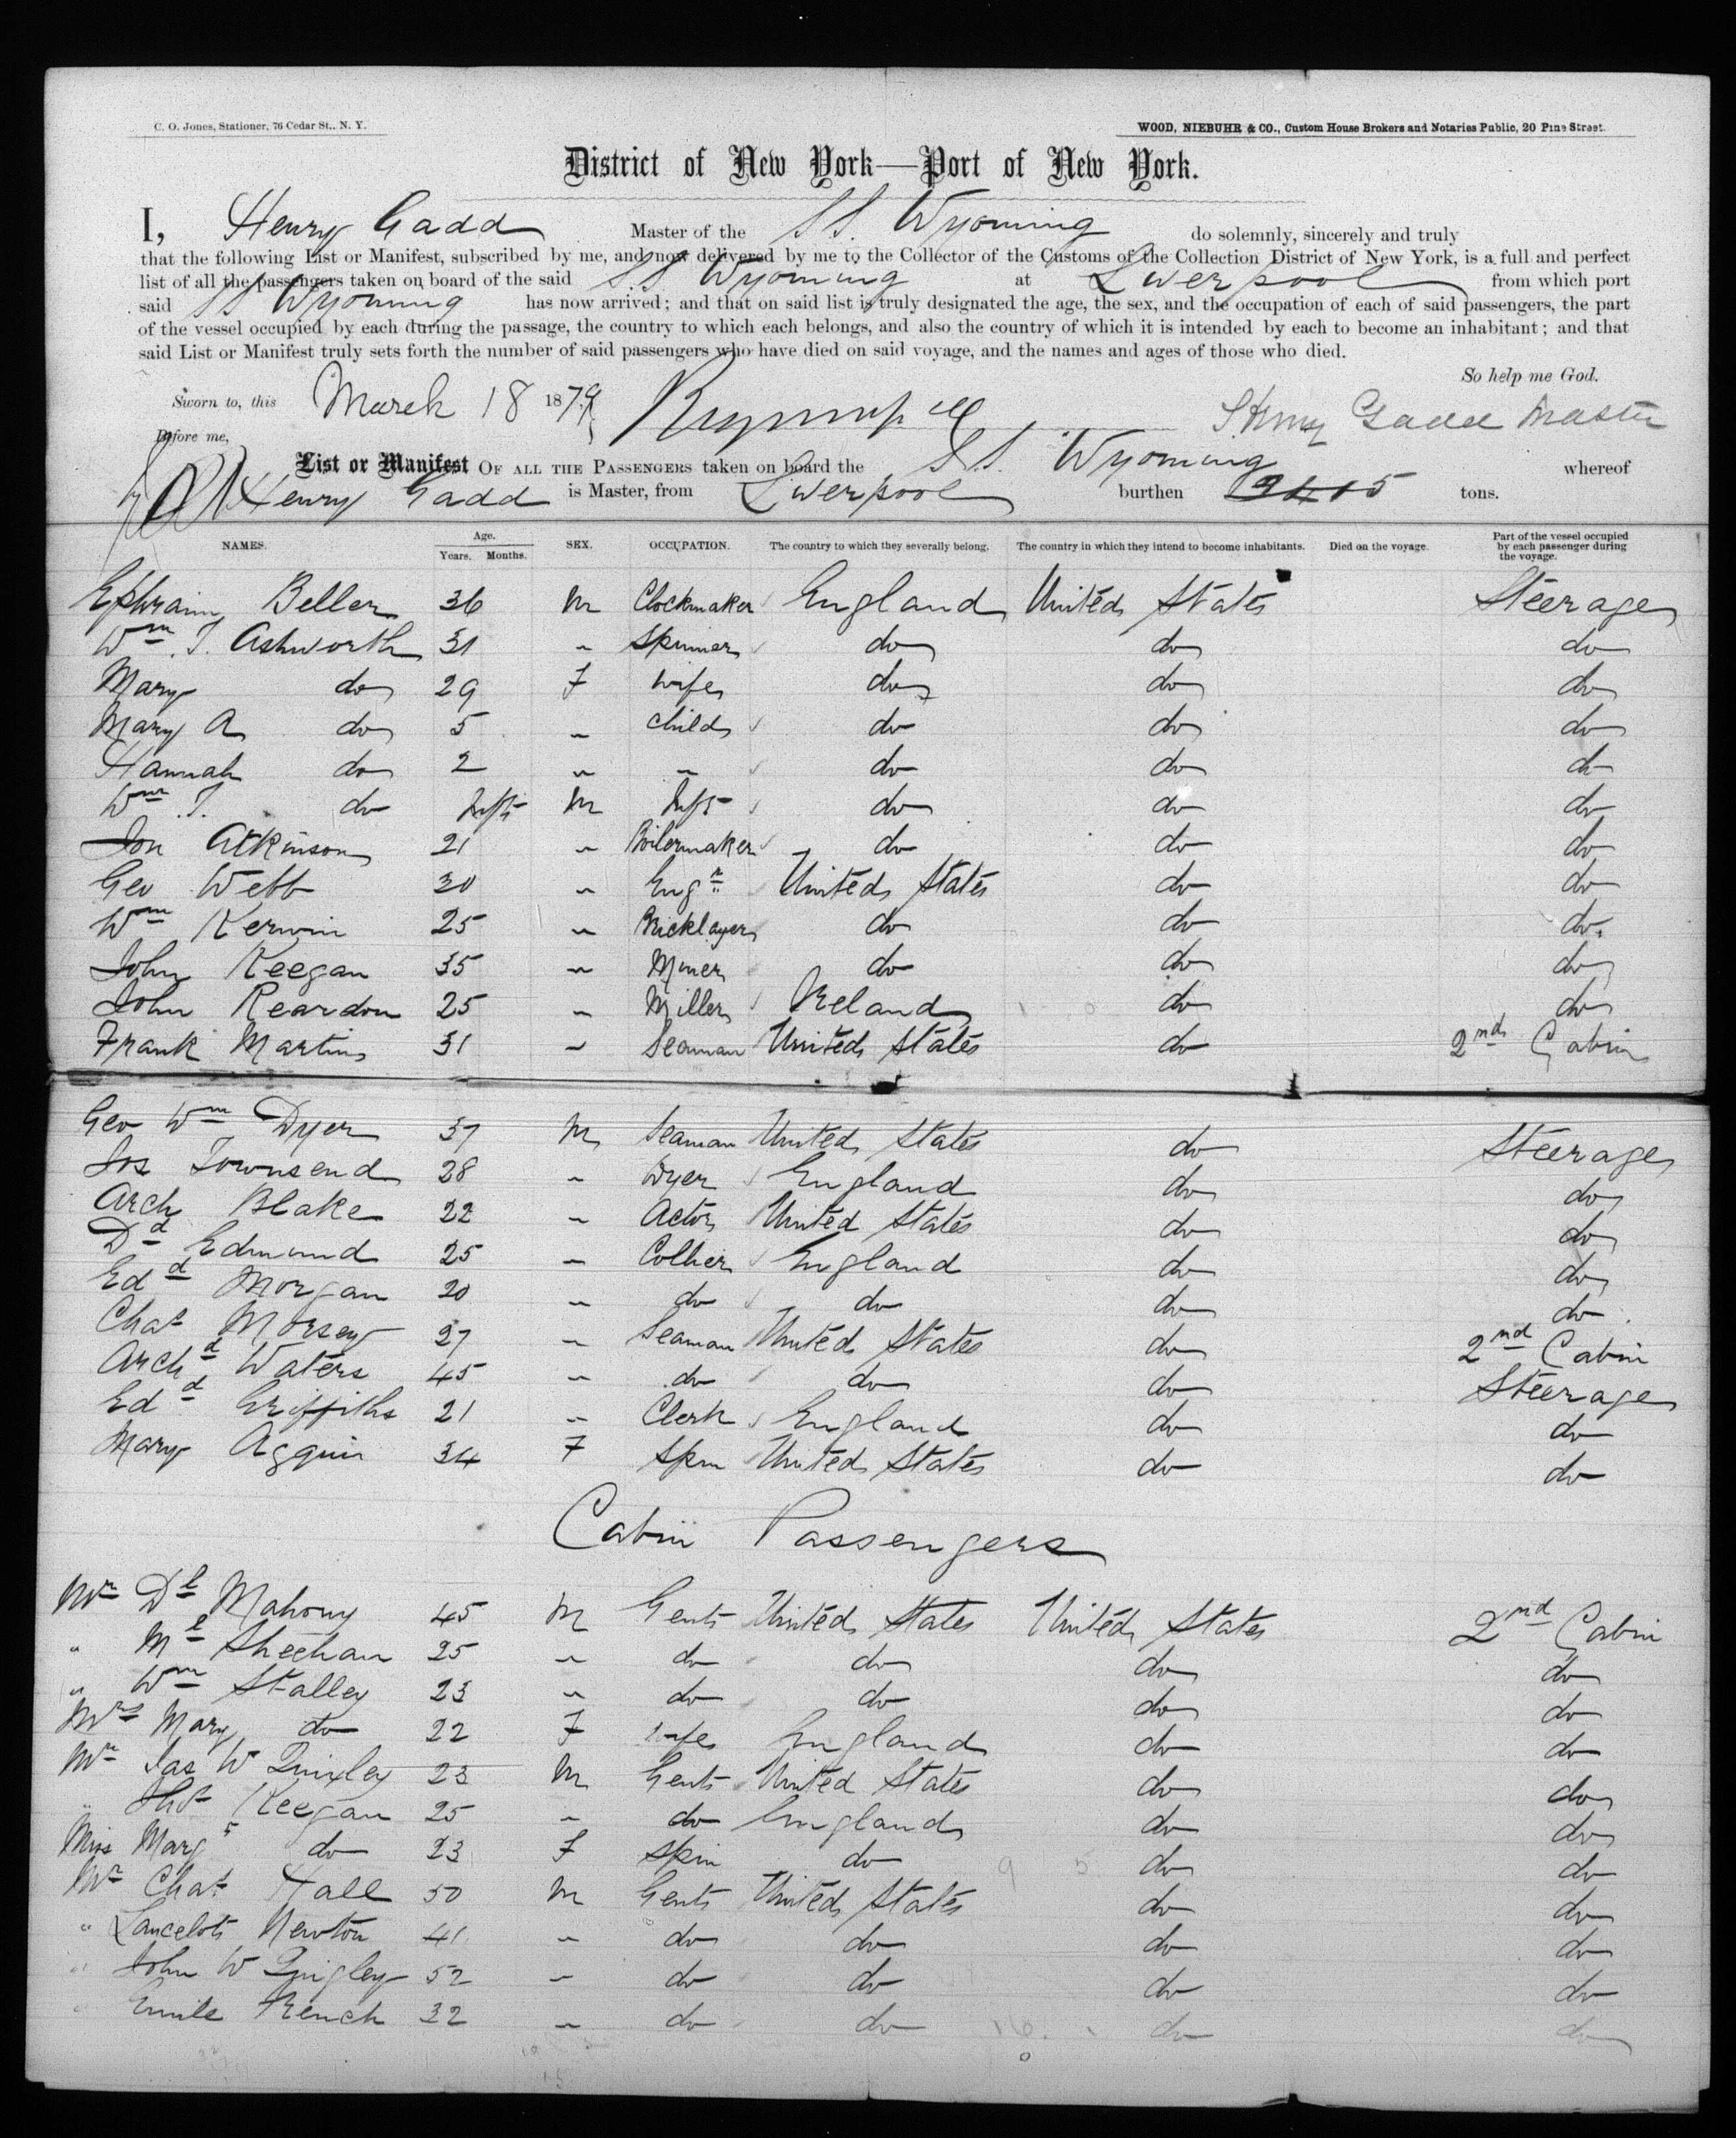 C. O. Jones, Stationer, 76 Cedar St., N. Y.
WOOD, NIEBUHR & CO., Custom House Brokers and Notaries Public, 20 Pine Street.
District of New York—Port of New York.
I, Henry Gadd Master of the S.S. Wyoming do solemnly, sincerely and truly
that the following List or Manifest, subscribed by me, and now delivered by me to the Collector of the Customs of the Collection District of New York, is a full and perfect
list of all the passengers taken on board of the said S.S Wyoming at Liverpool from which port
said SS Wyoming has now arrived; and that on said list is truly designated the age, the sex, and the occupation of each of said passengers, the part
of the vessel occupied by each during the passage, the country to which each belongs, and also the country of which it is intended by each to become an inhabitant; and that
said List or Manifest truly sets forth the number of said passengers who have died on said voyage, and the names and ages of those who died.
So help me God.
Sworn to, this March 18 1879 Henry Gadd Master
Before me,
List or Manifest OF ALL THE PASSENGERS taken on board the S.S. Wyoming whereof
Henry Gadd is Master, from Liverpool burthen tons.
NAMES. Age. Years. Months. SEX. OCCUPATION. The country to which they severally belong. The country in which they intend to become inhabitants. Died on the voyage. Part of the vessel occupied by each passenger during the voyage.
Ephraim Beller 36 M Clockmaker England United States Steerage
Wm. T. Ashworth 31 " Spinner do do do
Mary do 29 F wife do do do
Mary A do 5 " child do do do
Hannah do 2 " " do do do
Wm. T. do Inft M Inft do do do
Jon Atkinson 21 " Boilermaker do do do
Geo Webb 30 " Engr United States do do
Wm Kerwin 25 " Bricklayer do do do.
John Keegan 35 " Miner do do do
John Reardon 25 " Miller Ireland do do
Frank Martin 31 " Seaman United States do 2nd Cabin
Geo Wm Dyer 37 M Seaman United States do Steerage
Jos Townsend 28 " Dyer England do do
Arch Blake 22 " Actor United States do do
Dd Edmund 25 " Collier England do do
Edd Morgan 20 " do do do do
Chas Morsey 27 " Seaman United States do 2nd Cabin
Archd Waters 45 " do do do Steerage
Edd Griffiths 21 " Clerk England do do
Mary Agguin 34 F Spin United States do do
Cabin Passengers
Mr Dl Mahony 45 M Gent United States United States 2nd Cabin
" Ml Sheehan 25 " do do do do
" Wm Stalley 23 " do do do do
Mrs Mary do 22 F wife England do do
Mr Jas W Quigley 23 M Gent United States do do
" Thos Keegan 25 " do England do do
Miss Margt do 23 F Spin do do do
Mr Chas Hall 50 M Gent United States do do
" Lancelot Newton 41 " do do do do
" John W Quigley 52 " do do do do
" Emile French 32 " do do do do